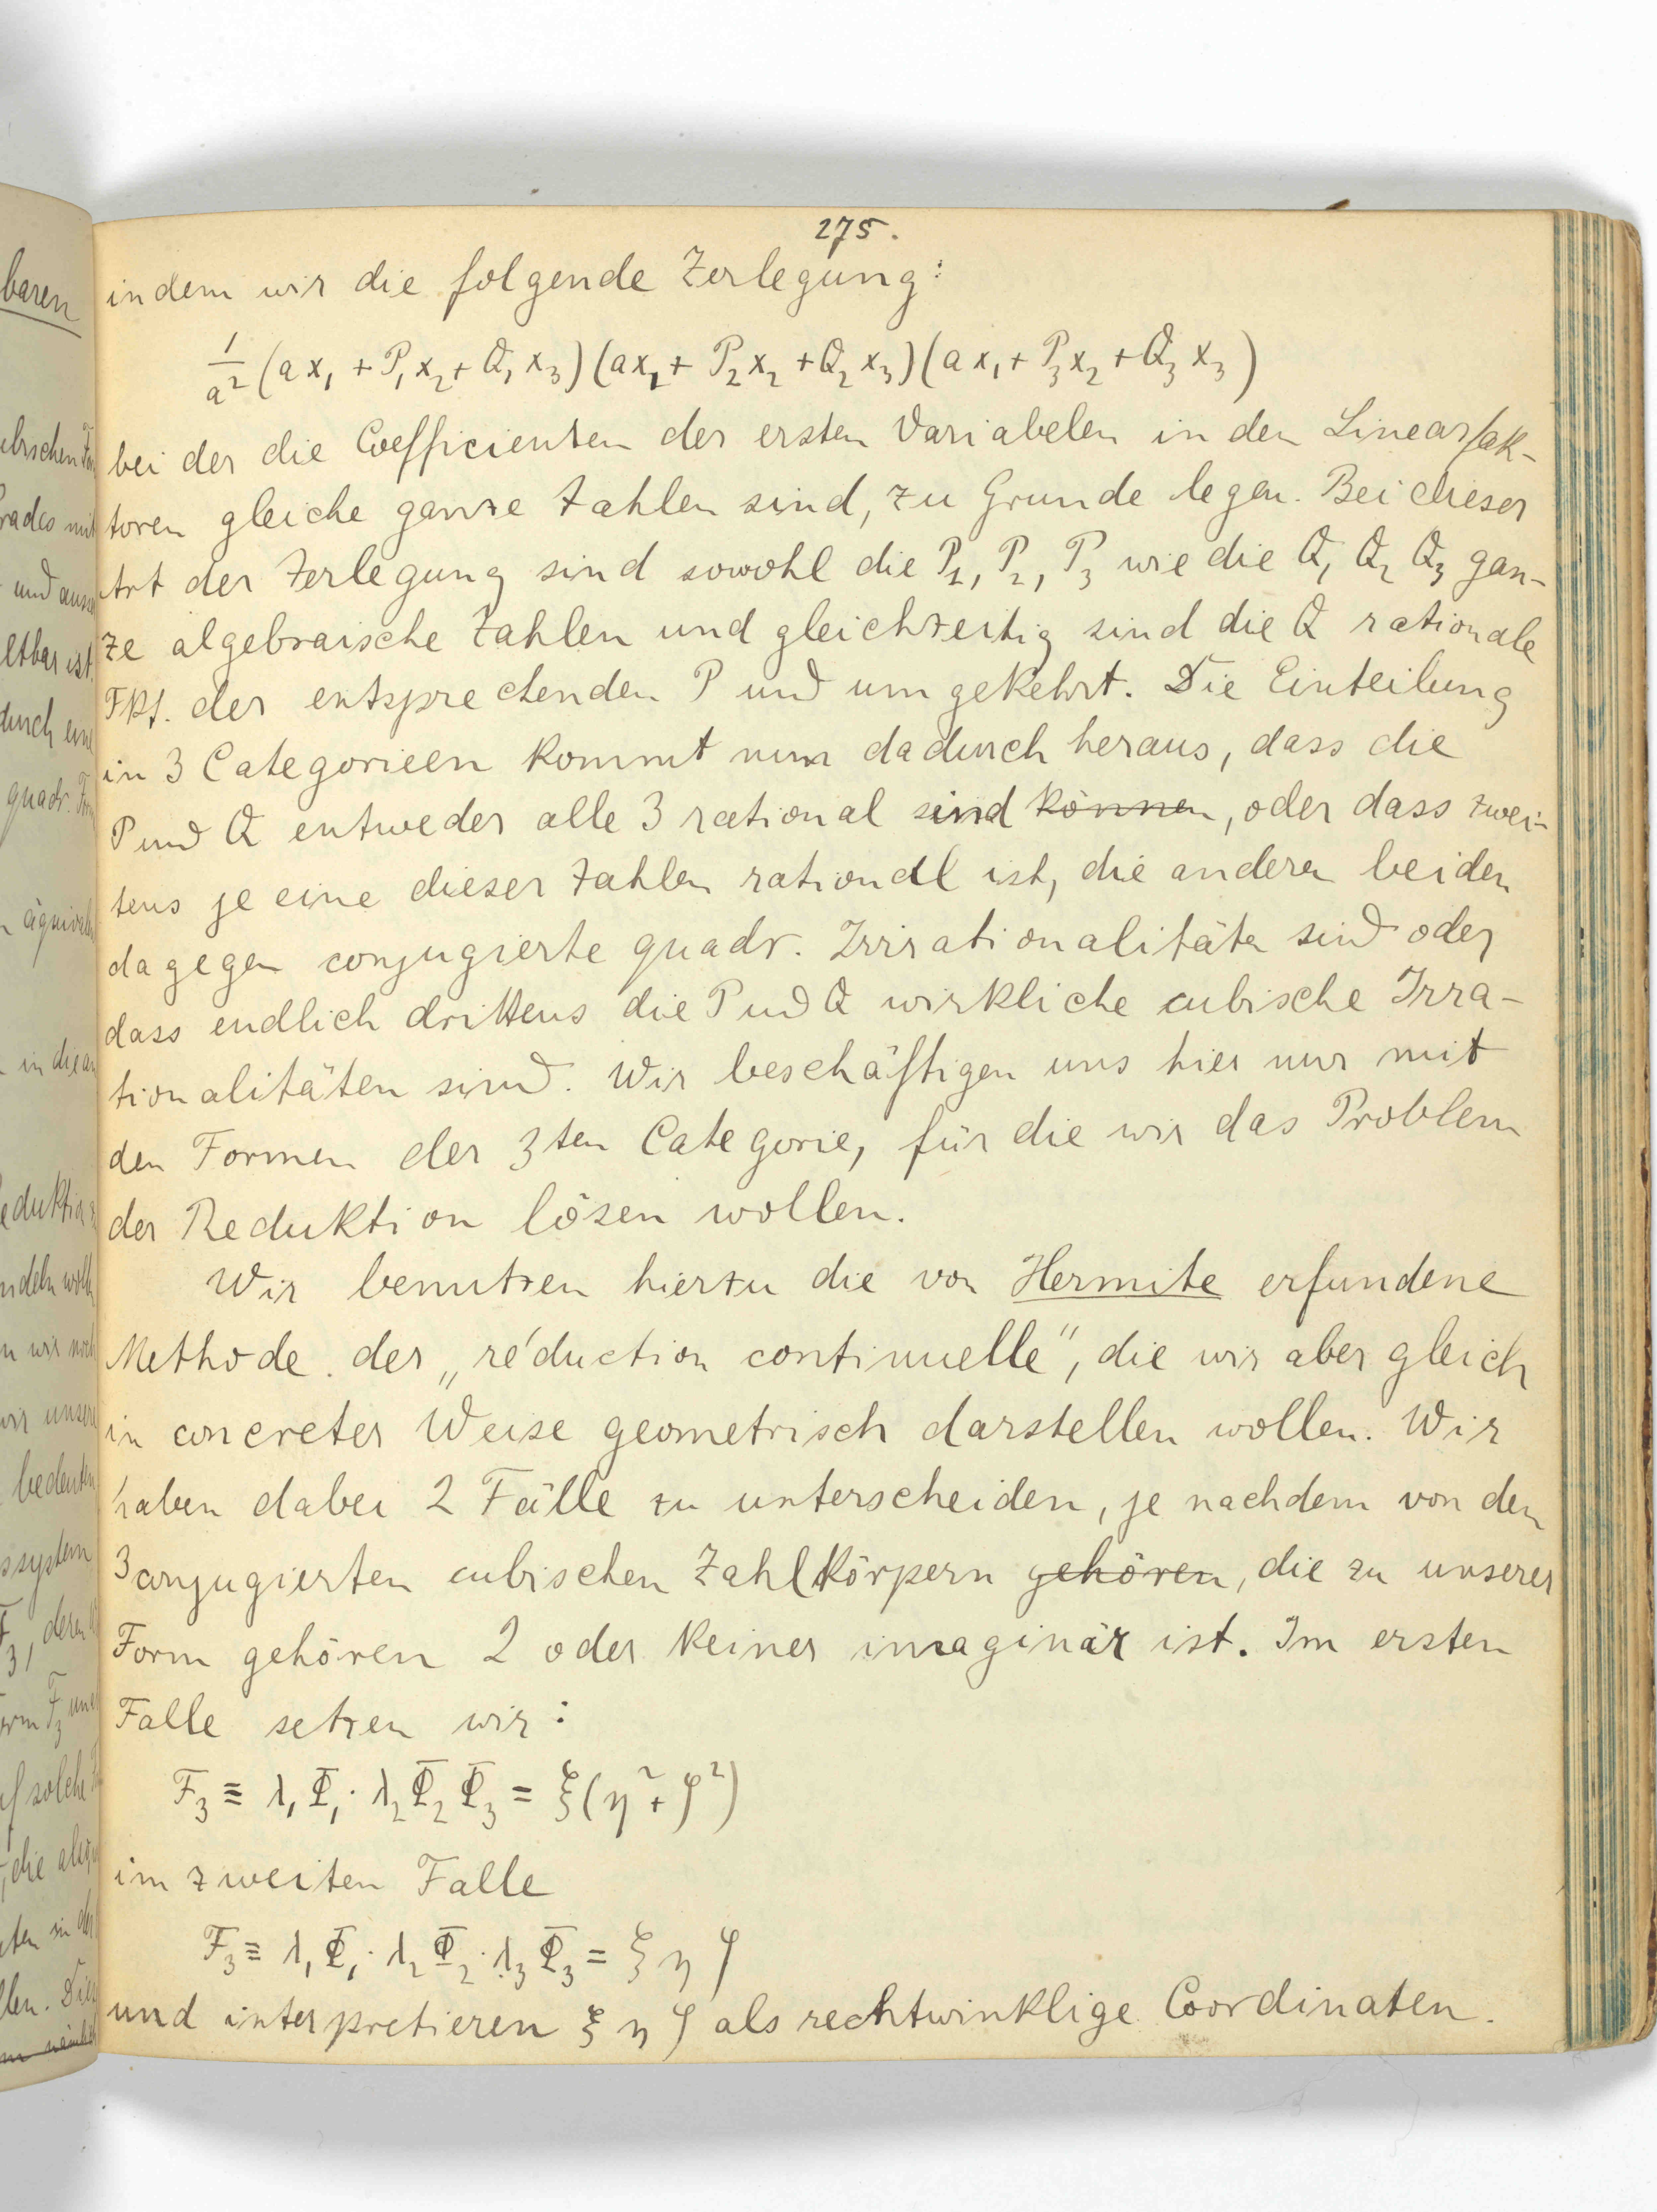 275.
indem wir die folgende Zerlegung:
1/a² (ax₁ + P₁x₂ + Q₁x₃)(ax₁ + P₂x₂ + Q₂x₃)(ax₁ + P₃x₂ + Q₃x₃)
bei der die Coefficienten der ersten Variabelen in den Linearfak-
toren gleiche ganze Zahlen sind, zu Grunde legen. Bei dieser
Art der Zerlegung sind sowohl die P₁, P₂, P₃ wie die Q₁ Q₂ Q₃ gan-
ze algebraische Zahlen und gleichzeitig sind die Q rationale
Fkt. der entsprechenden P und umgekehrt. Die Einteilung
in 3 Categorieen kommt nun dadurch heraus, dass die
P und Q entweder alle 3 rational sind können, oder dass zwei-
tens je eine dieser Zahlen rational ist, die anderen beiden
dagegen conjugierte quadr. Irrirationalitäten sind oder
dass endlich drittens die P und Q wirkliche cubische Irra-
tionalitäten sind. Wir beschäftigen uns hier nur mit
den Formen der 3ten Categorie, für die wir das Problem
der Reduktion lösen wollen.
Wir benutzen hierzu die von Hermite erfundene
Methode der „réduction continuelle", die wir aber gleich
in concreter Weise geometrisch darstellen wollen. Wir
haben dabei 2 Fälle zu unterscheiden, je nachdem von den
3 conjugierten cubischen Zahlkörpern gehören, die zu unserer
Form gehören 2 oder keiner imaginär ist. Im ersten
Falle setzen wir:
F₃ ≡ λ₁Φ₁ · λ₂Φ₂Φ₃ = ξ(η² + ζ²)
im zweiten Falle
F₃ ≡ λ₁Φ₁ · λ₂Φ₂ · λ₃Φ₃ = ξ η ζ
und interpretieren ξ η ζ als rechtwinklige Coordinaten.